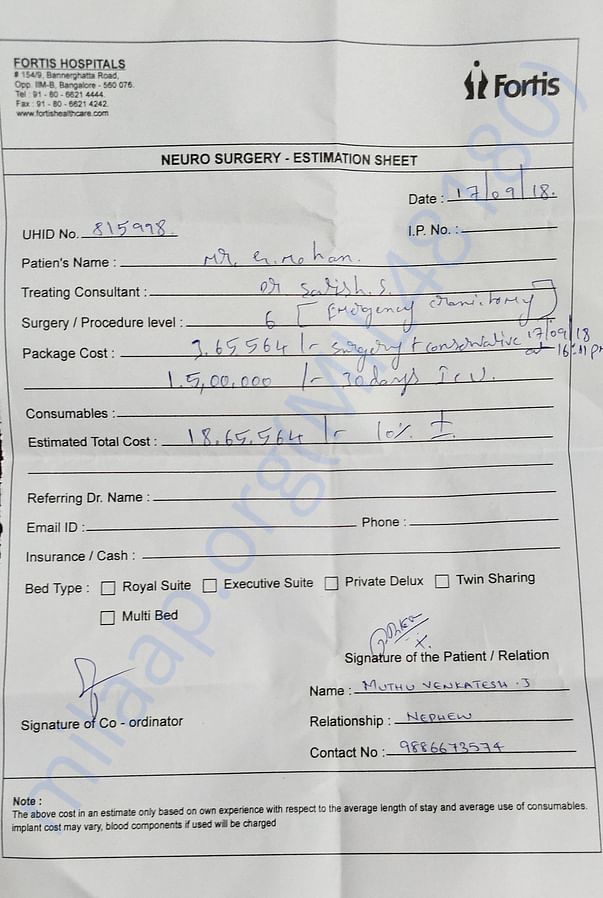 FORTIS HOSPITALS
# 154/9, Bannerghatta Road,
Opp. IIM-B, Bangalore - 560 076.
Tel : 91 - 80 - 6621 4444.
Fax : 91 - 80 - 6621 4242.
www.fortishealthcare.com
Fortis
NEURO SURGERY - ESTIMATION SHEET
Date : 17/09/18.
UHID No. 815998.
I.P. No. :
Patien's Name : Mr. G. Mohan.
Treating Consultant : Dr Satish. S.
Surgery / Procedure level : 6 [Emergency craniotomy]
Package Cost : 3.65,564 /- surgery + conservative 17/09/18
at 16:11 pm
1.5,00,000 /- 30 days I.C.U.
Consumables :
Estimated Total Cost : 18.65.564 /- 10% ±
Referring Dr. Name :
Email ID : Phone :
Insurance / Cash :
Bed Type : Royal Suite Executive Suite Private Delux Twin Sharing
Multi Bed
Signature of the Patient / Relation
Name : MUTHU VENKATESH . J
Signature of Co - ordinator
Relationship : NEPHEW
Contact No : 9886673574
Note :
The above cost in an estimate only based on own experience with respect to the average length of stay and average use of consumables.
implant cost may vary, blood components if used will be charged
milaap.org(Mil48180)